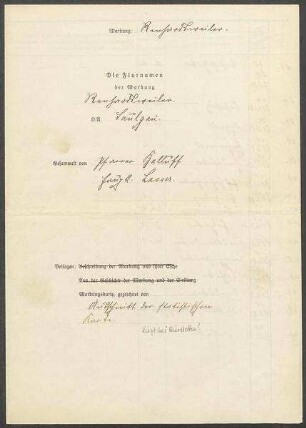 Markung: Renhardsweiler.
Die Flurnamen
der Markung
Renhardsweiler
OA. Saulgau.
Gesammelt von Pfarrer Halluff
Hauptl. Lasser.
Beilagen: Beschreibung der Markung und ihrer Orte
Aus der Geschichte der Markung und der Siedlung
Markungskarte, gezeichnet von
Ausschnitt der statistischen
Karte.
liegt bei